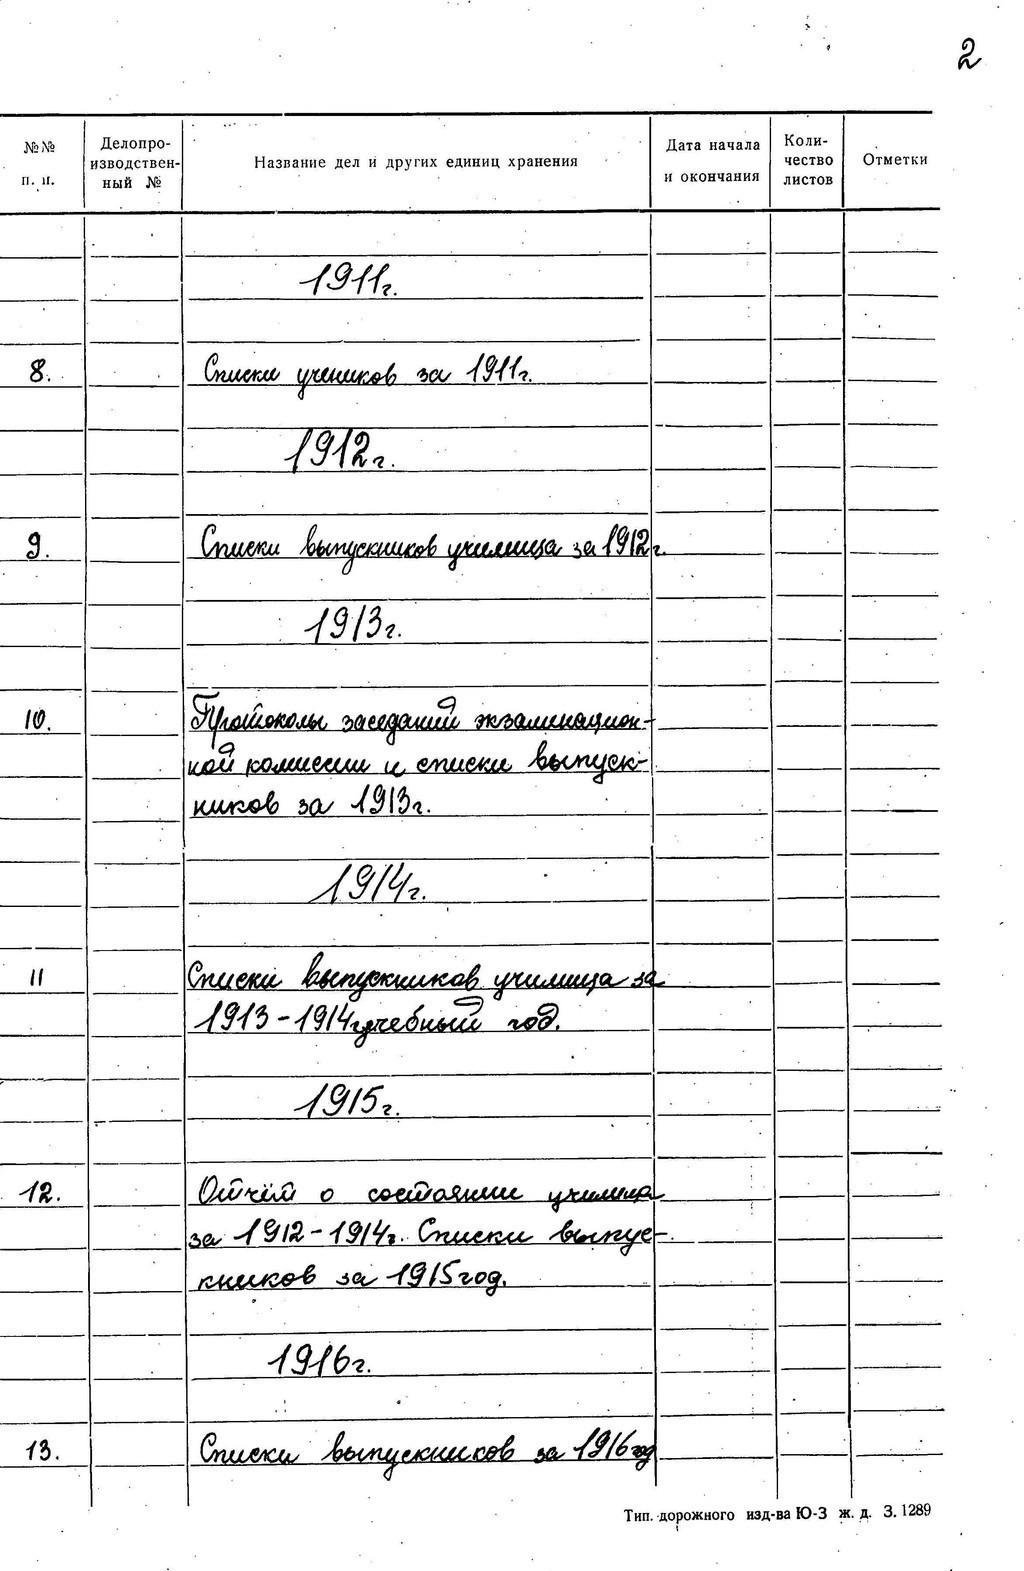 2
№№ п. п.
Делопро-
изводствен-
ный №
Название дел и других единиц хранения
Дата начала
и окончания
Коли-
чество
листов
Отметки
1911г.
8. Списки учеников за 1911г.
1912г.
9. Списки выпускников училища за 1912г.
1913г.
10. Протоколы заседаний экзаменацион-
ной комиссии и списки выпуск-
ников за 1913г.
1914г.
11 Списки выпускников училища за
1913-1914г учебный год.
1915г.
12. Отчёт о состоянии училища
за 1912-1914г. Списки выпус-
кников за 1915год.
1916г.
13. Списки выпускников за 1916год
Тип. дорожного изд-ва Ю-З ж. д. З. 1289